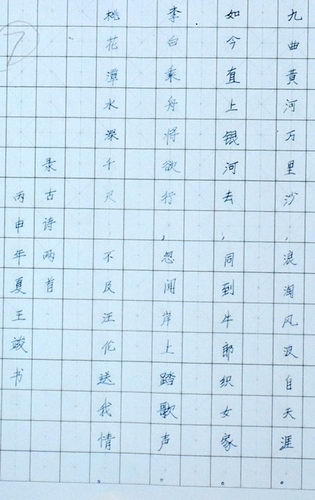 九曲黄河万里沙，浪淘风浪自天涯。
如今直上银河去，同到牛郎织女家。
李白乘舟将欲行，忽闻岸上踏歌声。
桃花潭水深千尺 不及汪伦送我情。
录古诗两首
丙申年夏王诚书
7